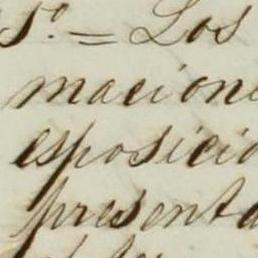 5º = Los
macione
esposicio
presenta